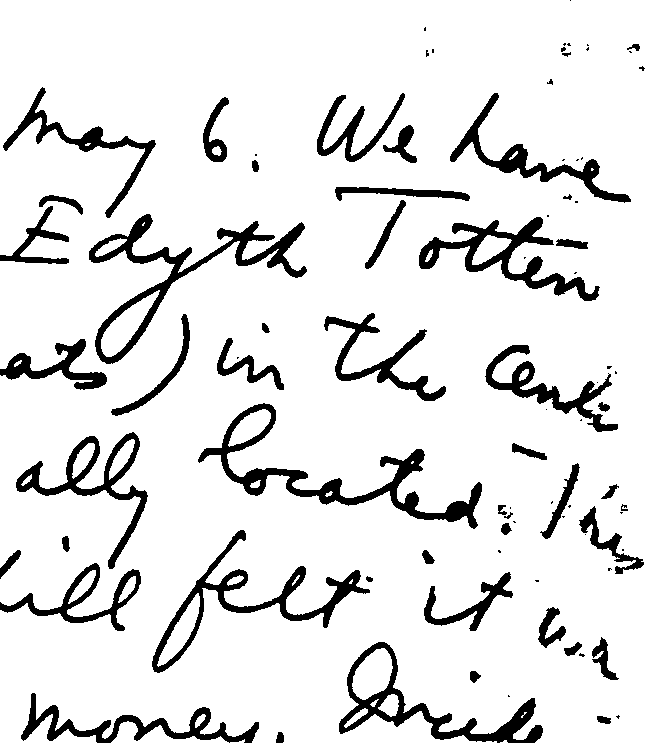 May 6. We have
Edyth Totten
ats) in the Centr
ally located. This
ill felt it wa
money. Incide-